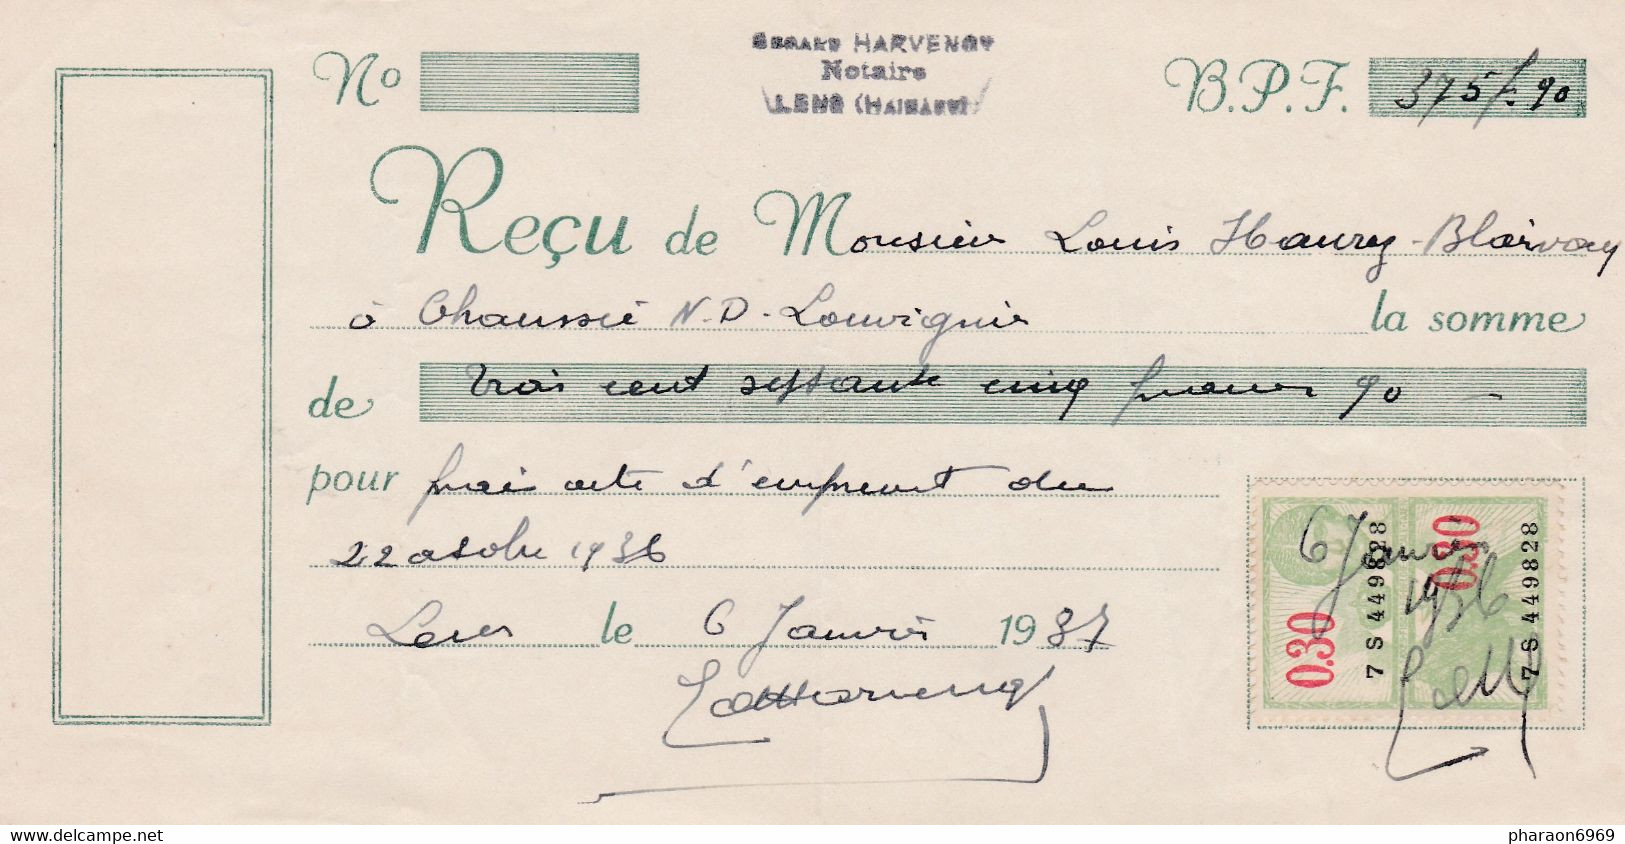 GERARD HARVENGT
Notaire
LENS (HAINAUT)
No
B.P.F. 375 f. 90
Reçu de Monsieur Louis Haurez-Blairvacq
à Chaussée N.D. Louvignie la somme
de trois cent septante cinq francs 90 -
pour frais acte d'emprunt du
22 octobre 1936
Lens le 6 Janvier 1937
6 Janvier
1936
0.30
0.30
7 S 449828
7 S 449828
www.delcampe.net
pharaon6969